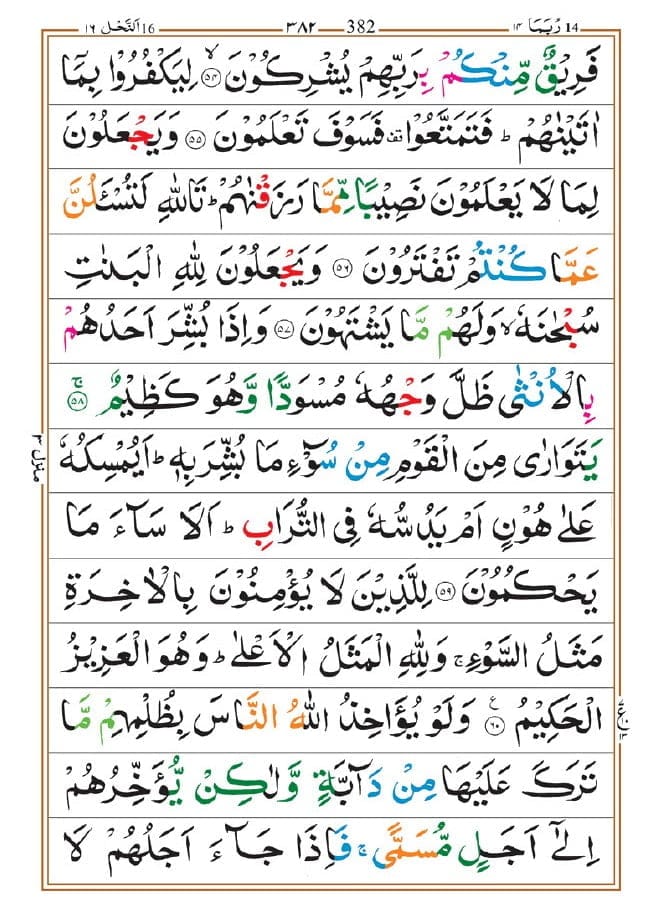 ١٦ اَلنَّحْل 16 ٣٨٢ 382 ١٤ رُبَمَا 14
فَرِيْقٌ مِّنْكُمْ بِرَبِّهِمْ يُشْرِكُوْنَ ۙ‏﴿۵۴﴾ لِيَكْفُرُوْا بِمَاۤ
اٰتَيْنٰهُمْ‌ؕ فَتَمَتَّعُوْا‌ فَسَوْفَ تَعْلَمُوْنَ‏ ﴿۵۵﴾ وَيَجْعَلُوْنَ
لِمَا لَا يَعْلَمُوْنَ نَصِيْبًا مِّمَّا رَزَقْنٰهُمْ‌ؕ تَاللّٰهِ لَتُسْـَٔـلُنَّ
عَمَّا كُنْتُمْ تَفْتَرُوْنَ‏ ﴿۵۶﴾ وَيَجْعَلُوْنَ لِلّٰهِ الْبَنٰتِ
سُبْحٰنَهٗ‌ۙ وَلَهُمْ مَّا يَشْتَهُوْنَ‏ ﴿۵۷﴾ وَاِذَا بُشِّرَ اَحَدُهُمْ
بِالْاُنْثٰى ظَلَّ وَجْهُهٗ مُسْوَدًّا وَّهُوَ كَظِيْمٌ‌ۚ‏ ﴿۵۸﴾
يَتَوَارٰى مِنَ الْقَوْمِ مِنْ سُوْۤءِ مَا بُشِّرَ بِهٖؕ اَيُمْسِكُهٗ
عَلٰى هُوْنٍ اَمْ يَدُسُّهٗ فِى التُّرَابِ‌ؕ اَلَا سَآءَ مَا
يَحْكُمُوْنَ‏ ﴿۵۹﴾ لِلَّذِيْنَ لَا يُؤْمِنُوْنَ بِالْاٰخِرَةِ
مَثَلُ السَّوْءِ‌ۚ وَلِلّٰهِ الْمَثَلُ الْاَعْلٰى‌ؕ وَهُوَ الْعَزِيْزُ
الْحَكِيْمُ‏ ﴿۶۰﴾ وَلَوْ يُؤَاخِذُ اللّٰهُ النَّاسَ بِظُلْمِهِمْ مَّا
تَرَكَ عَلَيْهَا مِنْ دَآبَّةٍ وَّلٰكِنْ يُّؤَخِّرُهُمْ
اِلٰٓى اَجَلٍ مُّسَمًّى‌ۚ فَاِذَا جَآءَ اَجَلُهُمْ لَا
منزل ٣